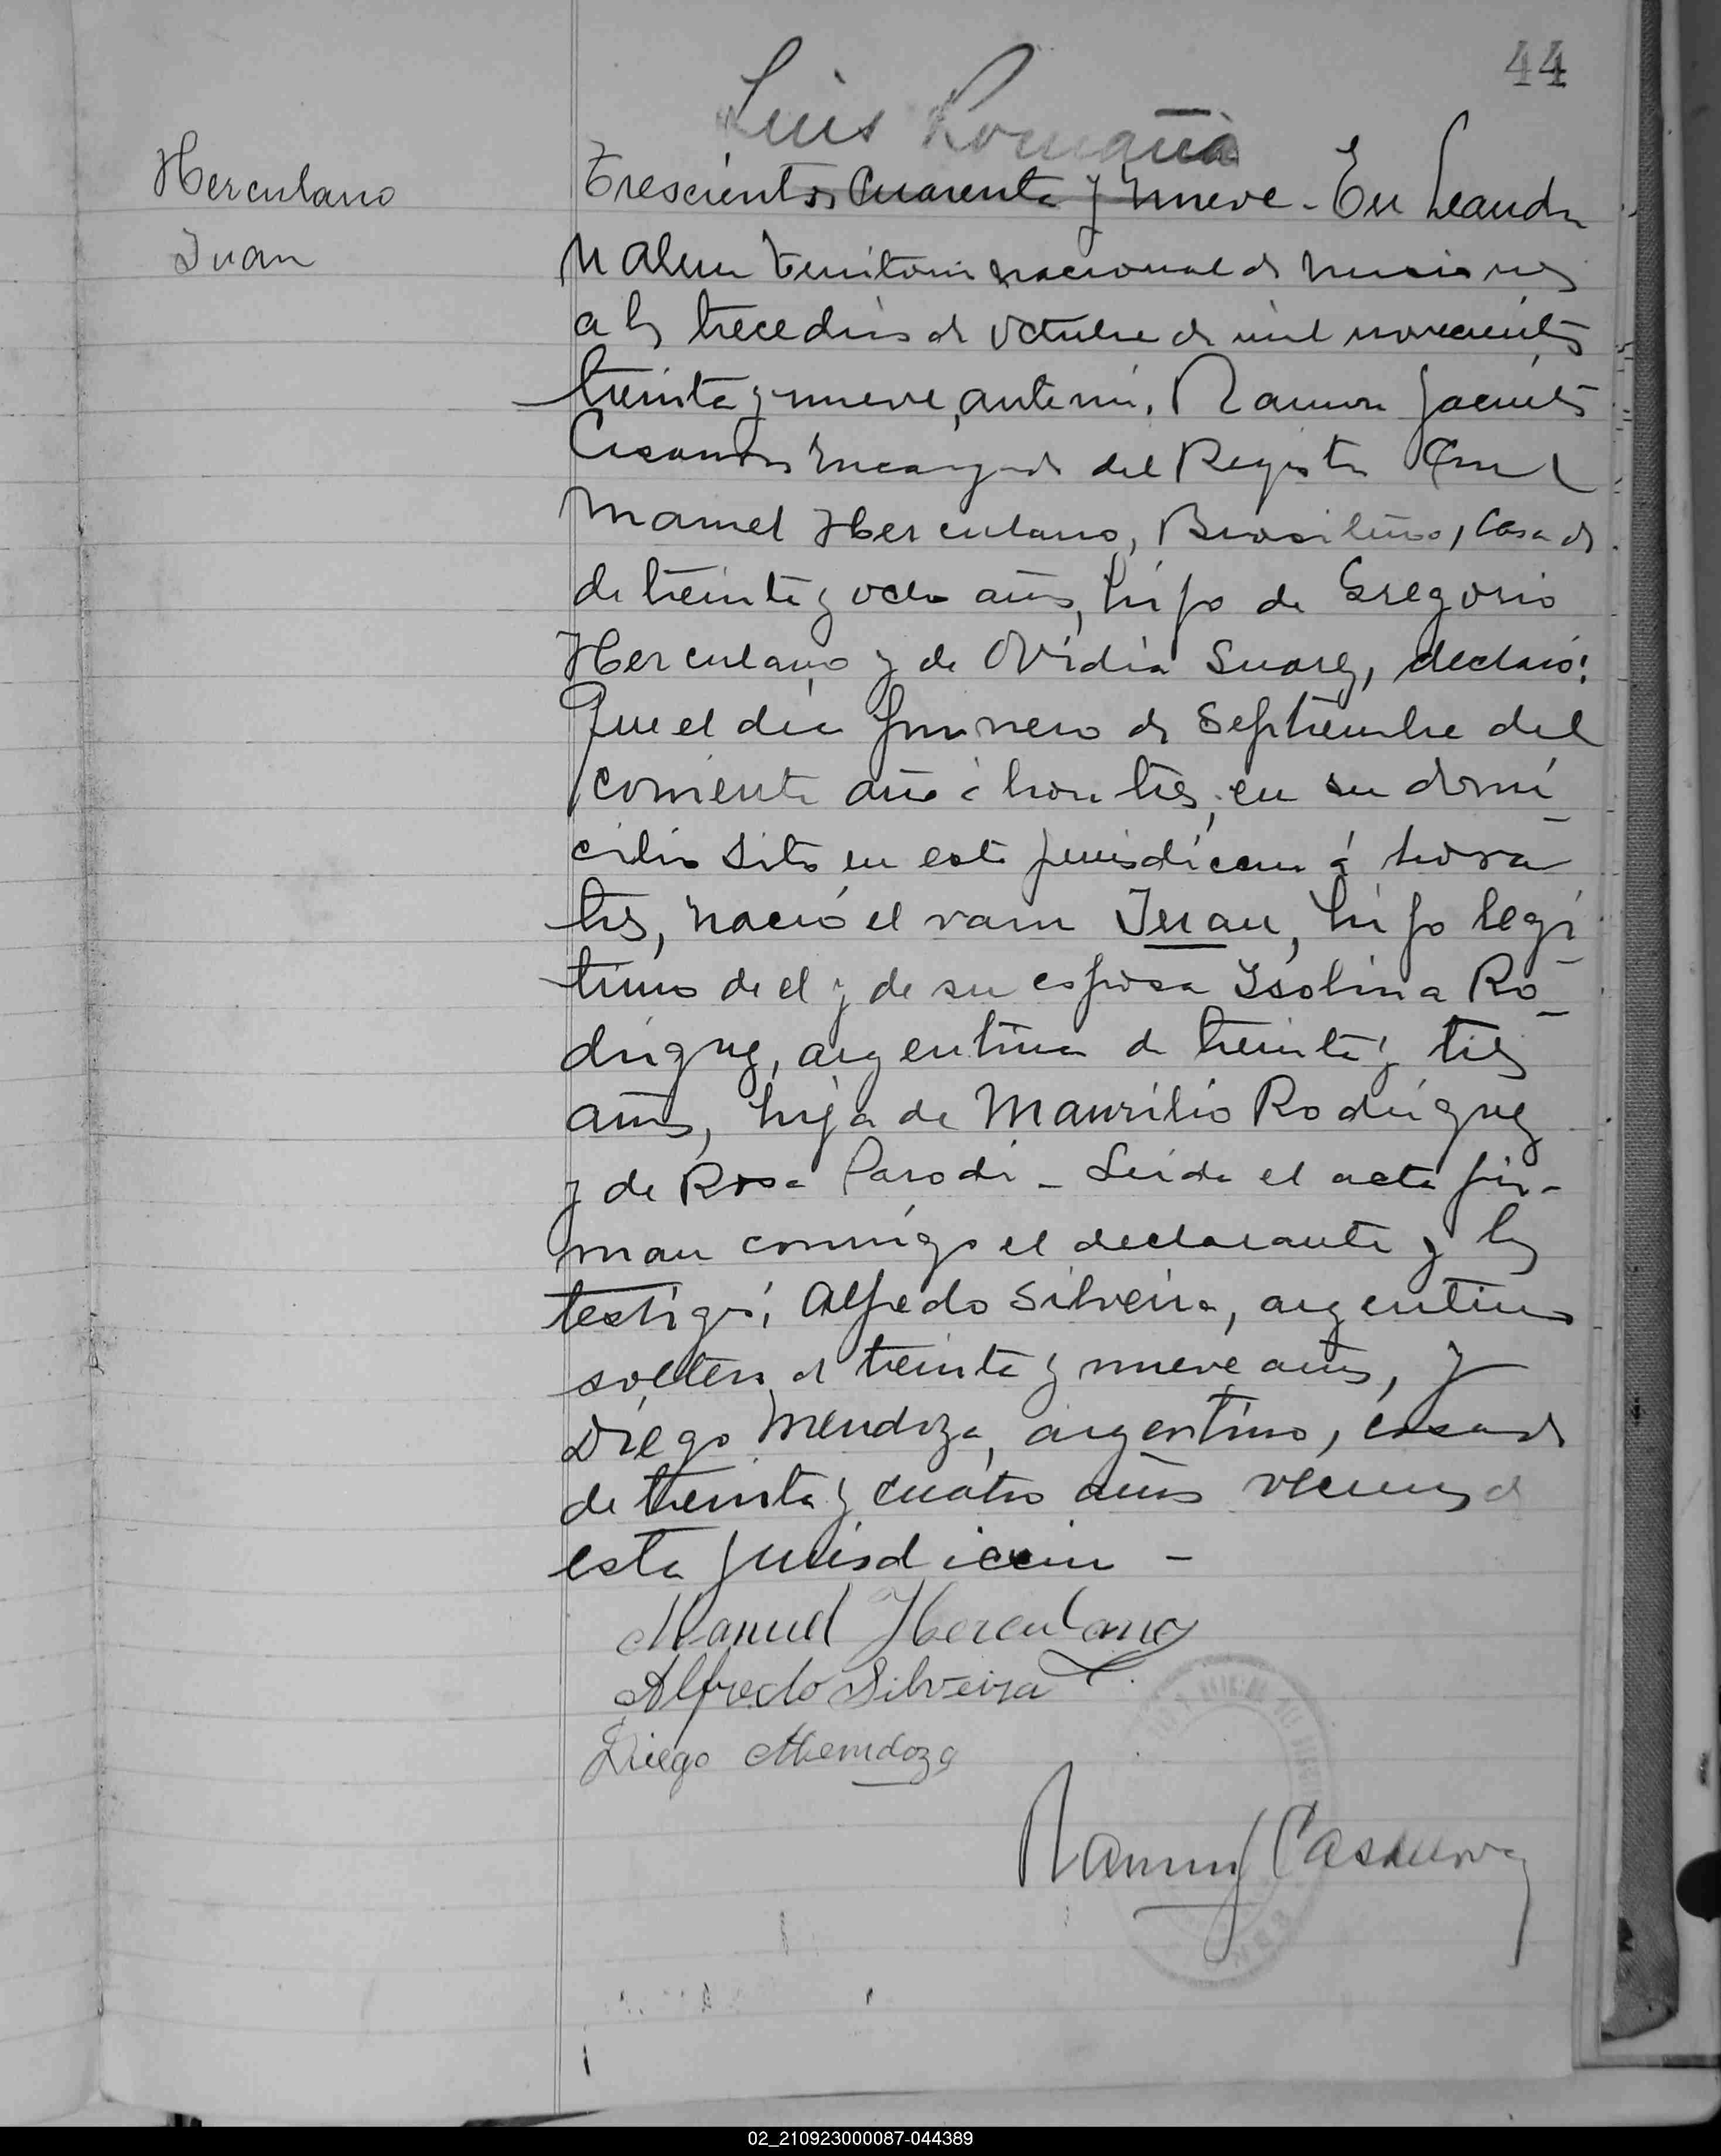 44
Luis Romañá
Herculano
Juan
Trescientos Cuarenta y nueve - En Leandro
N Alem Territorio nacional de Misiones
a los trece dias de Octubre de mil novecientos
treinta y nueve, ante mi, Ramon
Encargado del Registro Civil
Manuel Herculano, Brasileño, casado
de treinta y ocho años, hijo de Gregorio
Herculano y de Ovidia Suarez, declaró:
Que el dia primero de Septiembre del
corriente año á hora tres, en su domi
cilio sito en esta jurisdiccion á hora
tres, nació el varon Juan, hijo legi
timo de el y de su esposa Isolina Ro
driguez, argentina de treinta y tres
años, hija de Maurilio Rodriguez
y de Rosa Parodi - Leida el acta fir-
man conmigo el declarante y los
testigos, Alfredo Silveira, argentino
soltero de treinta y nueve años, y
Diego Mendoza, argentino, casado
de treinta y cuatro años vecinos de
esta jurisdiccion -
Manuel Herculano
Alfredo Silveira
Diego Mendoza
Ramon J Casanova
02_210923000087-044389